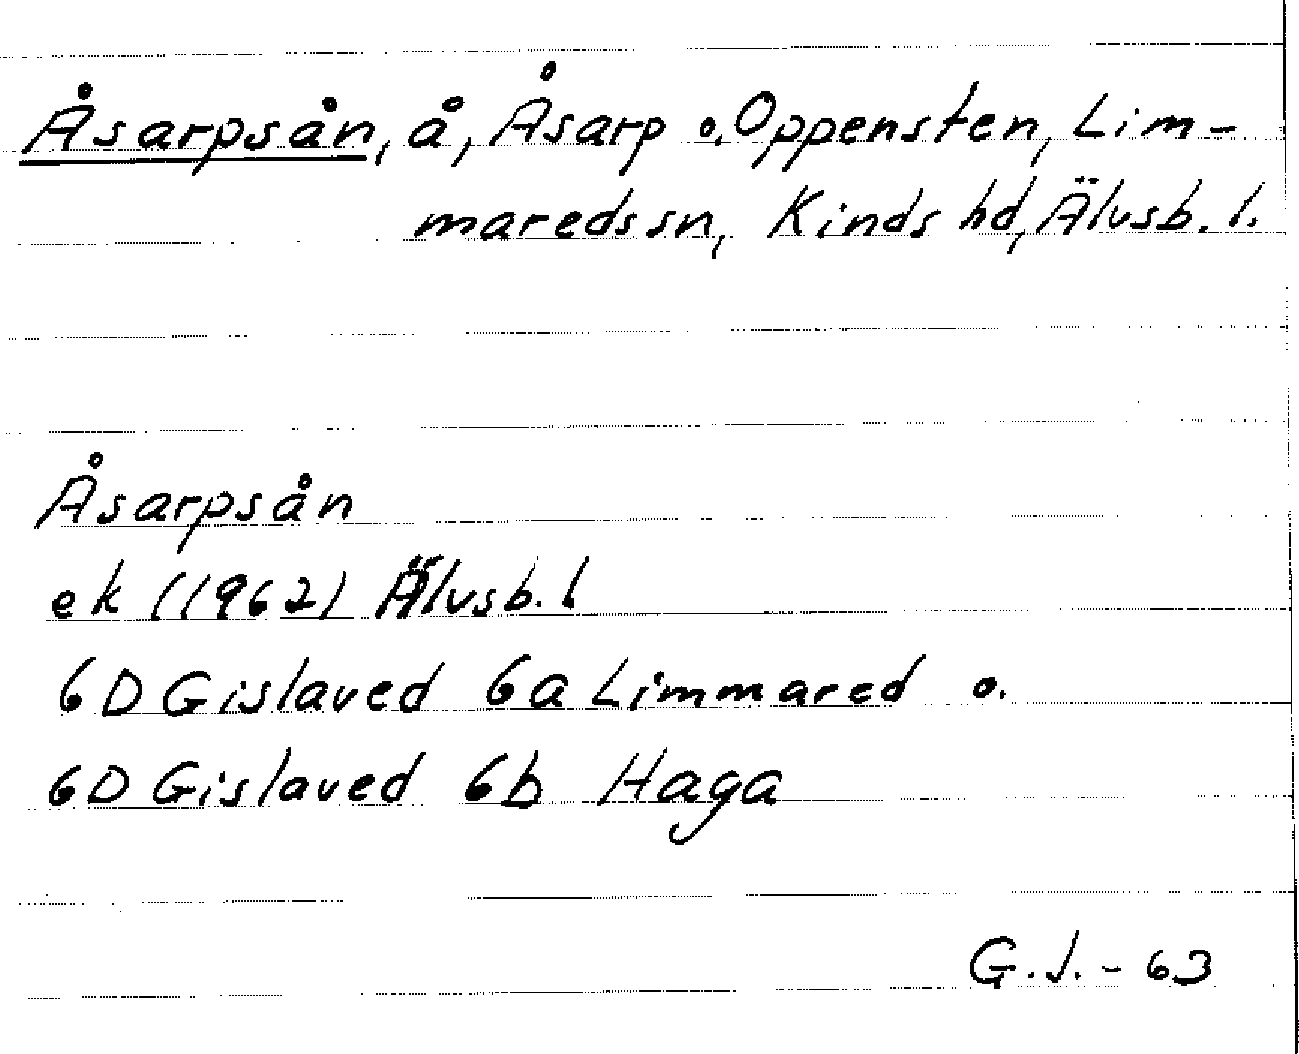 Åsarpsån, å, Åsarp o. Oppensten, Lim-
mareds sn, Kinds hd, Älvsb. l.
Åsarpsån
ek (1962) Älvsb. l
6D Gislaved 6a Limmared o.
6D Gislaved 6b Haga
G.J.-63